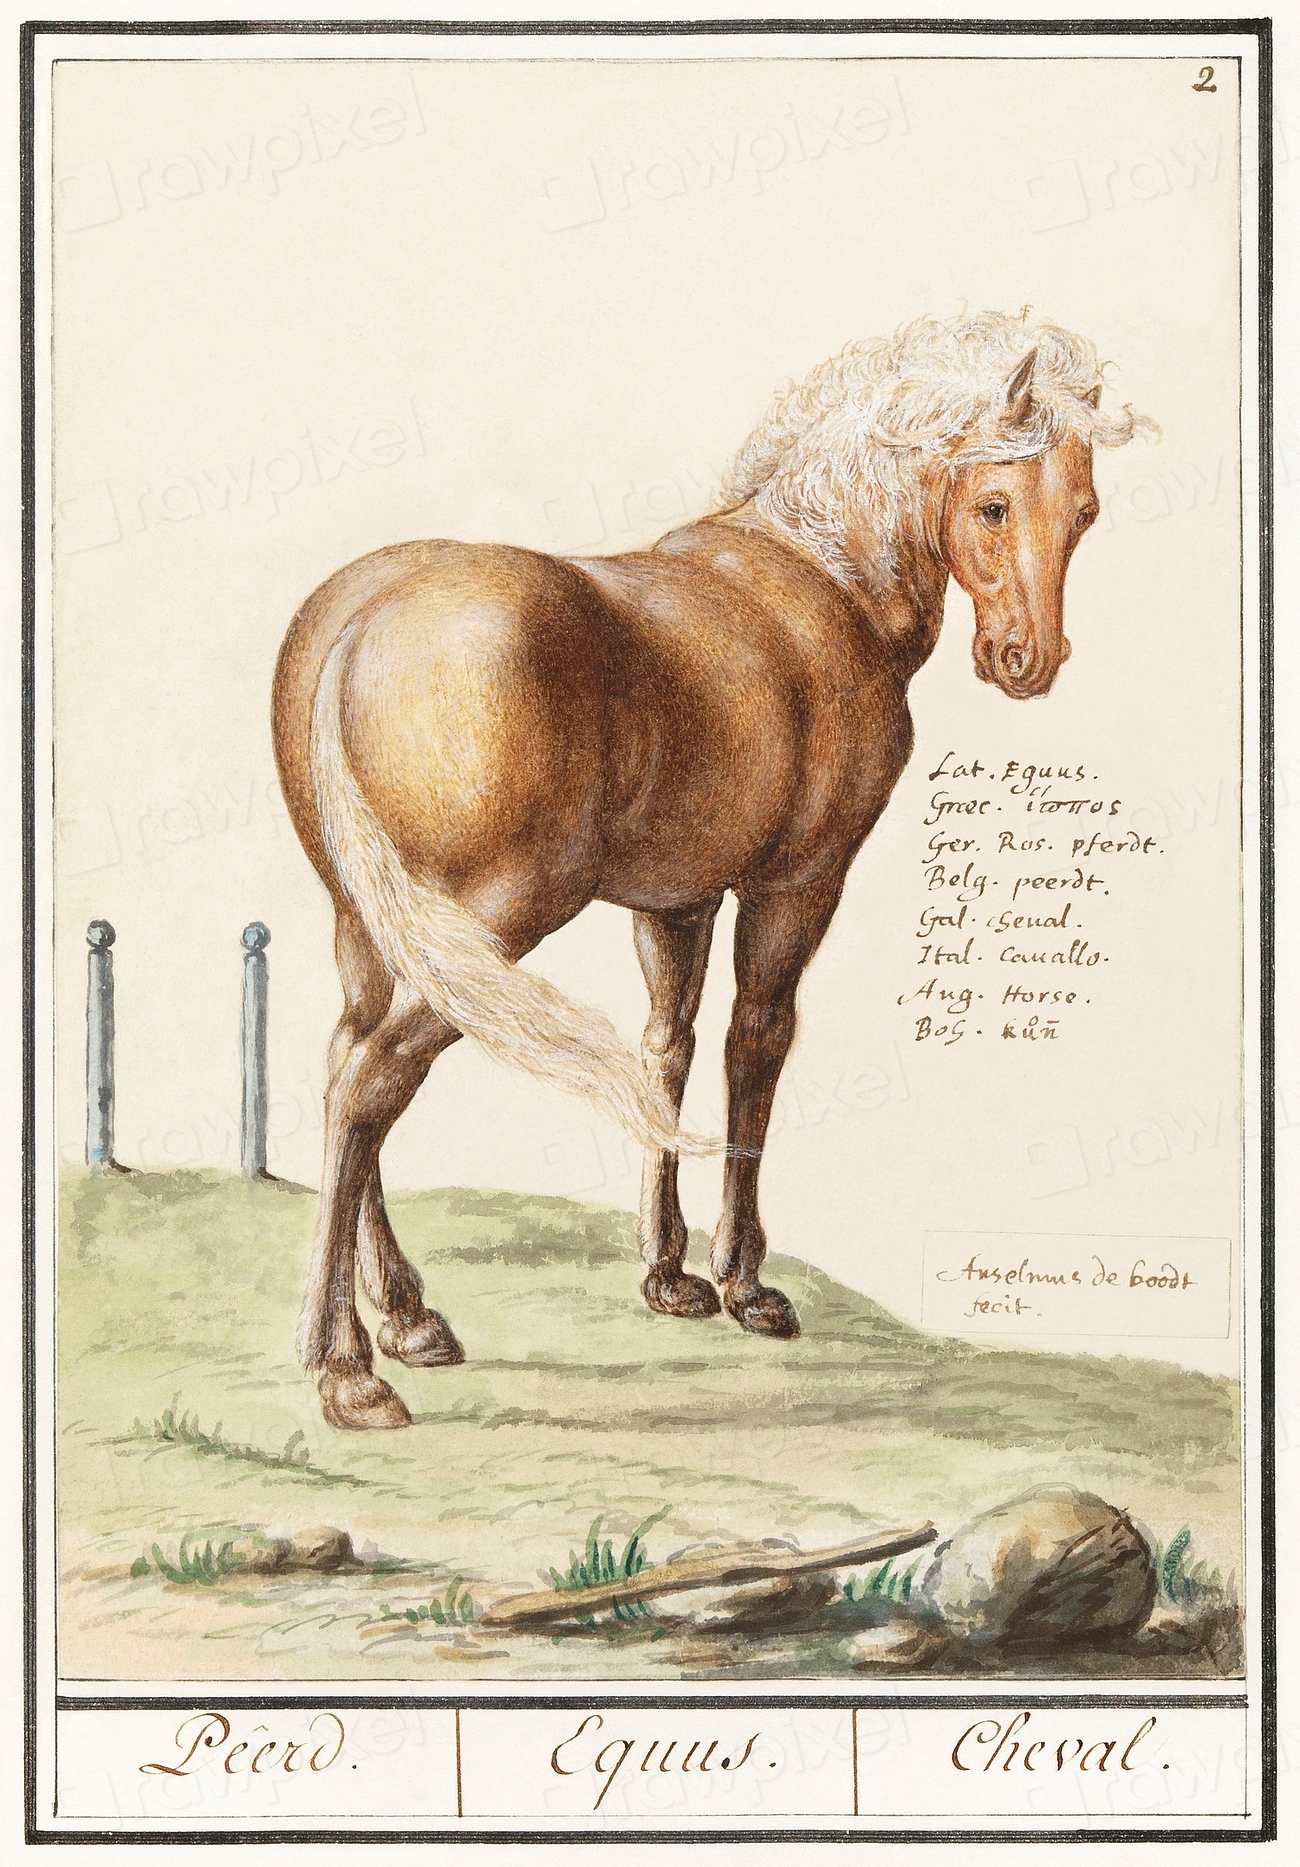 2
Lat. Equus.
Græc. ἵππos
Ger. Ros. pferdt.
Belg. peerdt.
Gal. cheual.
Ital. cauallo.
Ang. Horse.
Boh. kůn̄
Anselmus de boodt
fecit.
Pêerd. Equus. Cheval.
rawpixel